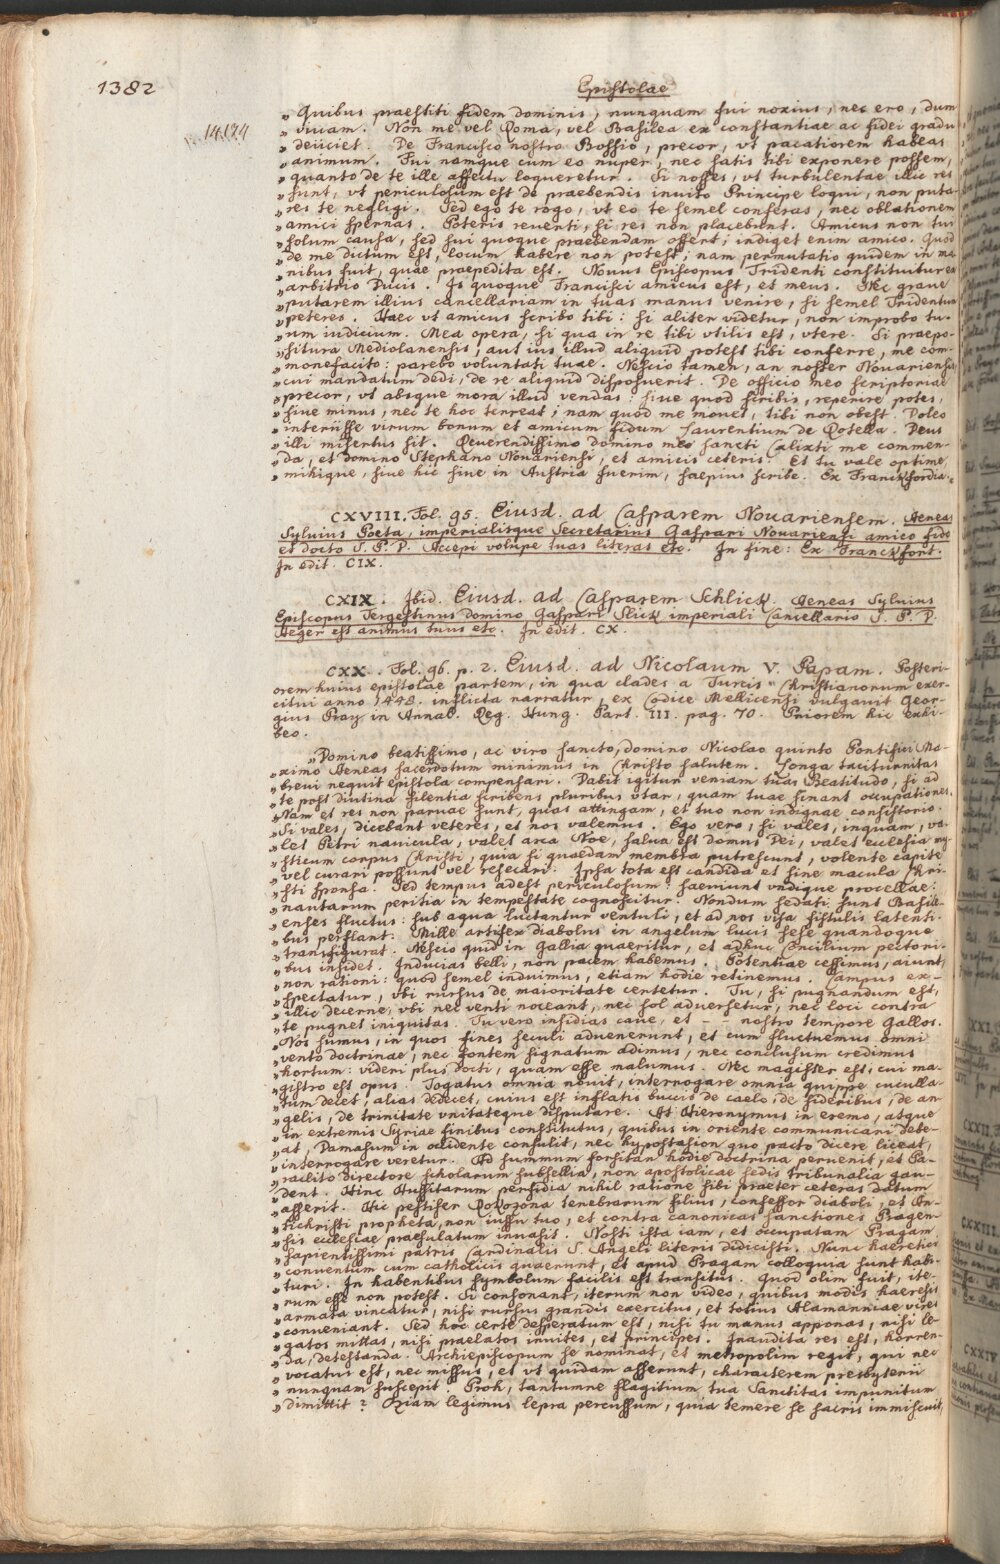 1382
Epistolae
14174
„ Quibus praestiti fidem dominis, nunquam fui noxius, nec ero, dum
„ viuam. Non me vel Roma, vel Basilea ex constantiae ac fidei gradu
„ deiiciet. De Francisco nostro Bossio, precor, vt pacatiorem habeas
„ animum. Fui namque cum eo nuper, nec satis tibi exponere possem,
„ quanto de te ille affectu loqueretur. Si nosses, vt turbulentae illic res
„ sunt, vt periculosum est de praebendis inuito Principe loqui, non puta-
„ res te negligi. Sed ego te rogo, vt eo te semel conferas, nec oblationem
„ amici spernas. Poteris reuerti, si res non placebunt. Amicus non tui
„ solum causa, sed sui quoque praebendam offert; indiget enim amico. Quod
„ de me dictum est, locum habere non potest; nam permutatio quidem in ma-
„ nibus fuit, quae praepedita est. Nouus Episcopus Tridenti constituitur ex
„ arbitrio Ducis. Is quoque Francisci amicus est, et meus. Nec graue
„ putarem illius cancellariam in tuas manus venire, si semel Tridentum
„ peteres. Haec vt amicus scribo tibi: si aliter videtur, non improbo tu-
„ um iudicium. Mea opera, si qua in re tibi vtilis est, vtere. Si praepo-
„ situra Mediolanensis, aut ius illud aliquid potest tibi conferre, me com-
„ monefacito: parebo voluntati tuae. Nescio tamen, an noster Nouariensis,
„ cui mandatum dedi, de re aliquid disposuerit. De officio meo scriptoriae
„ precor, vt absque mora illud vendas: siue quod scribis, reperire potes,
„ siue minus, nec te hoc terreat; nam quod me mouet, tibi non obest. Doleo
„ interiisse virum bonum et amicum fidum Laurentium de Rotella. Deus
„ illi misertus sit. Reuerendissimo domino meo sancti Calixti me commen-
„ da, et domino Stephano Nouariensi, et amicis ceteris. Et tu vale optime,
„ mihique, siue hic siue in Austria fuerim, saepius scribe. Ex Franckfordia.
CXVIII. Fol. 95. Eiusd. ad Casparem Nouariensem. Aeneas
Syluius Poeta, imperialisque Secretarius Gaspari Nouariensi amico fido
et docto S. P. D. Accepi volupe tuas literas etc. In fine: Ex Franckfort.
In edit. CIX.
CXIX. Ibid. Eiusd. ad Casparem Schlick. Aeneas Syluius
Episcopus Tergestinus domino Gaspari Slick imperiali Cancellario S. P. D.
Aeger est animus tuus etc. In edit. CX.
CXX. Fol. 96. p. 2. Eiusd. ad Nicolaum V. Papam. Posteri-
orem huius epistolae partem, in qua clades a Turcis Christianorum exer-
citui anno 1448. inflicta narratur, ex Codice Mellicensi vulgauit Geor-
gius Pray in Annal. Reg. Hung. Part. III. pag. 70. Priorem hic exhi-
beo.
„ Domino beatissimo, ac viro sancto, domino Nicolao quinto Pontifici Ma-
„ ximo Aeneas sacerdotum minimus in Christo salutem. Longa taciturnitas
„ breui nequit epistola compensari. Dabit igitur veniam tuas Beatitudo, si ad
„ te post diutina silentia scribens pluribus vtar, quam tuae sinant occupationes.
„ Nam et res non paruae sunt, quas attingam, et tuo non indignae consistorio.
„ Si vales, dicebant veteres, et nos valemus. Ego vero, si vales, inquam, va-
„ let Petri nauicula, valet arca Noe, salua est domus Dei, valet ecclesia my-
„ sticum corpus Christi, quia si quaedam membra putrescunt, volente capite
„ vel curari possunt vel resecari. Ipsa tota est candida et sine macula Chri-
„ sti sponsa. Sed tempus adest periculosum: saeuiunt vndique procellae:
„ nautarum peritia in tempestate cognoscitur. Nondum sedati sunt Basili-
„ enses fluctus: sub aqua luctantur ventuli, et ad nos vsa fistulis latenti-
„ bus perflant. Mille artifex diabolus in angelum lucis sese quandoque
„ transfigurat. Nescio quid in Gallia quaeritur, et adhuc Concilium pectori-
„ bus insidet. Inducias belli, non pacem habemus. Potentiae cessimus, aiunt,
„ non rationi: quod semel induimus, etiam hodie retinemus. Campus ex-
„ spectatur, vbi rursus de maioritate certetur. Tu, si pugnandum est,
„ illic decerne, vbi nec venti noceant, nec sol aduersetur, nec loci contra
„ te pugnet iniquitas. Tu vero insidias caue, et - - nostro tempore Gallos.
„ Nos sumus, in quos fines seculi aduenerunt, et cum fluctuemus omni
„ vento doctrinae, nec fontem signatum adimus, nec conclusum credimus
„ hortum: videri plus docti, quam esse malumus. Nec magister est, cui ma-
„ gistro est opus. Togatus omnia nouit, interrogare omnia quippe cuculla-
„ tum decet, alias dedecet, cuius est inflatis buccis de caelo, de sideribus, de an-
„ gelis, de trinitate vnitateque disputare. At Hieronymus in eremo, atque
„ in extremis Syriae finibus constitutus, quibus in oriente communicari debe-
„ at, Damasum in occidente consulit, nec hypostasion quo pacto dicere liceat,
„ interrogare veretur. Ad summum forsitan hodie doctrina peruenit, et Pa-
„ raclito directore scholarum subsellia, non apostolicae sedis tribunalia gau-
„ dent. Hinc Hussitarum perfidia nihil ratione sibi praeter ceteras datum
„ asserit. Hic pestifer Rokozona tenebrarum filius, confessor diaboli, et An-
„ tichristi propheta, non iussu tuo, et contra canonicas sanctiones Pragen-
„ sis ecclesiae praesulatum inuasit. Nosti ista iam, et occupatam Pragam
„ sapientissimi patris Cardinalis S. Angeli literis didicisti. Nunc haeretici
„ conuentum cum catholicis quaerunt, et apud Pragam colloquia sunt habi-
„ turi. In habentibus symbolum facilis est transitus. Quod olim fuit, ite-
„ rum esse non potest. Si consonant, iterum non video, quibus modis haeresis
„ armata vincatur, nisi rursus grandis exercitus, et totius Alamanniae vires
„ conueniant. Sed hoc certe desperatum est, nisi tu manus apponas, nisi le-
„ gatos mittas, nisi praelatos inuites, et principes. Inaudita res est, horren-
„ da, detestanda. Archiepiscopum se nominat, et metropolim regit, qui nec
„ vocatus est, nec missus, et vt quidam asserunt, characterem presbyterii
„ nunquam suscepit. Proh, tantumne flagitium tua Sanctitas impunitum
„ dimittit? Oziam legimus lepra percussum, quia temere se sacris immiscuit,